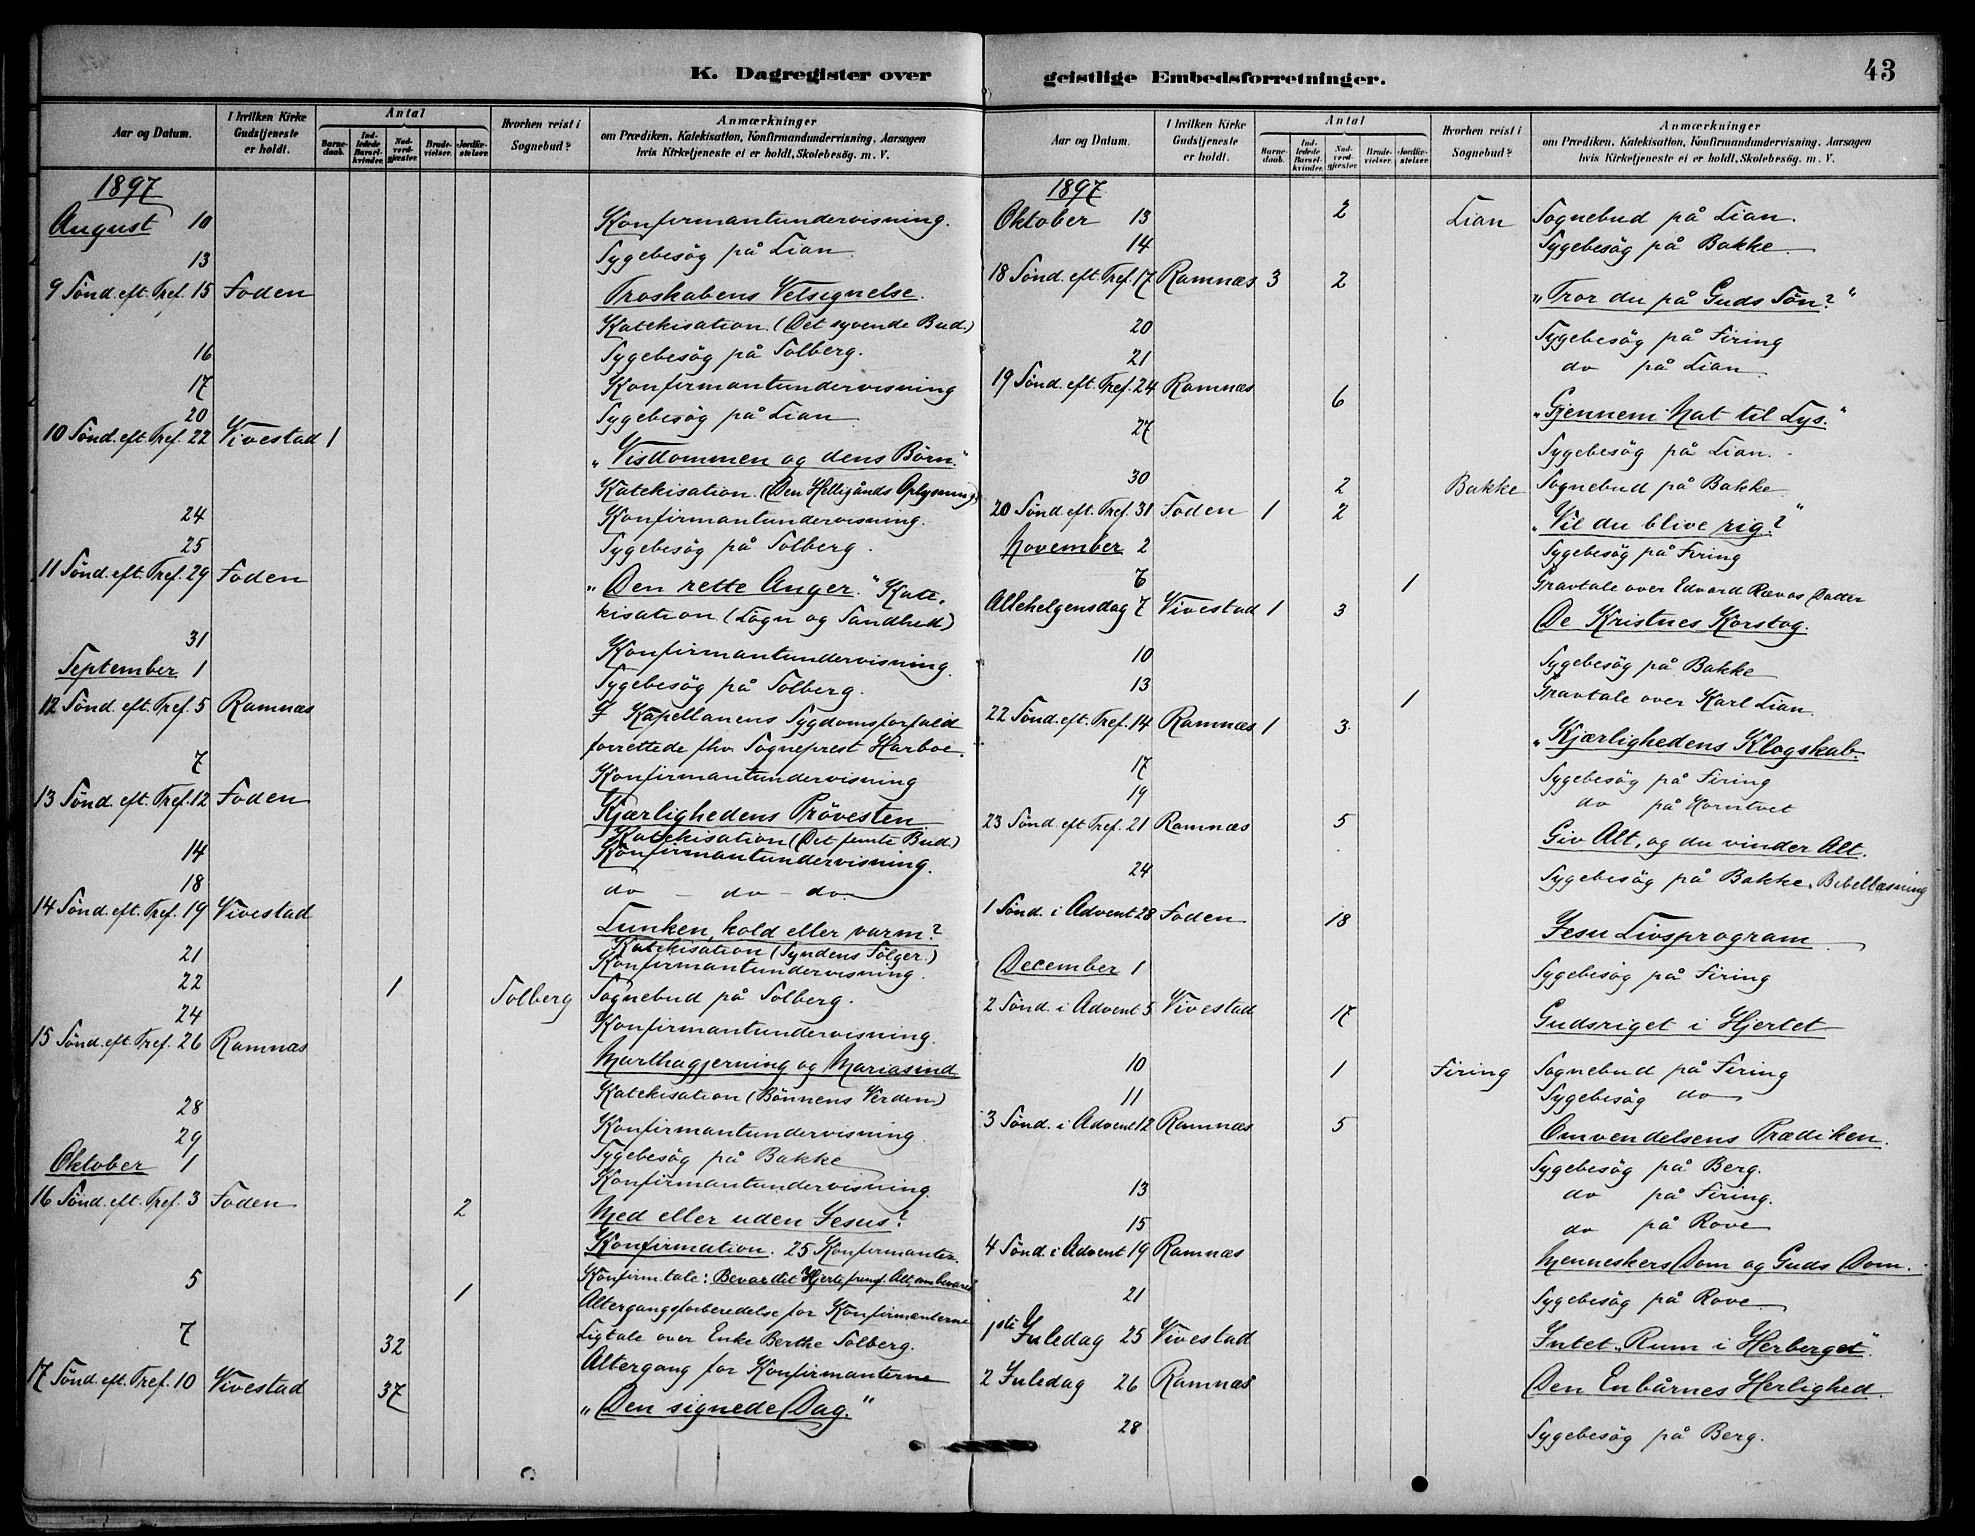 K. Dagregister over
Aar og Datum.
I hvilken Kirke Gudstjeneste er holdt.
Antal
Barnedaab.
Indledede Barselkvinder.
Nadverdgjester.
Brudevielser.
Jordfæstelser.
Hvorhen reist i Sognebud?
Anmærkninger
om Prædiken, Katekisation, Konfirmandundervisning, Aarsagen
hvis Kirketjeneste ei er holdt, Skolebesøg. m. V.
1897
August 10 Konfirmantundervisning.
13 Sygebesög på Lian.
9 Sönd. eft. Tref. 15 Foden Troskabens Velsignelse.
Katekisation. (Det syvende Bud.)
16 Sygebesög på Solberg.
17 Konfirmantundervisning
20 Sygebesög på Lian
10 Sönd. eft. Tref. 22 Vivestad 1 „Visdommen og dens Börn."
Katekisation. (Den Helligånds Oplysning)
24 Konfirmantundervisning.
25 Sygebesög på Solberg.
11 Sönd. eft. Tref. 29 Foden „Den rette Anger." Kate-
kisation. (Lögn og Sandhed)
31 Konfirmantundervisning.
September 1 Sygebesög på Solberg.
12 Sönd. eft. Tref. 5 Ramnæs I Kapellanens Sygdomsforfald
forrettede fhv. Sogneprest Harboe.
7 Konfirmantundervisning
13 Sönd. eft. Tref. 12 Foden Kjærlighedens Prövesten
Katekisation (Det femte Bud.)
14 Konfirmantundervisning.
18 do – do – do.
14 Sönd. eft. Tref. 19 Vivestad Lunken, kold eller varm?
Katekisation (Syndens Fölger.)
21 Konfirmantundervisning.
22 1 Solberg Sognebud på Solberg.
24 Konfirmantundervisning.
15 Sönd. eft. Tref. 26 Ramnæs Marthagjerning og Mariasind
Katekisation (Bönnens Verden)
28 Konfirmantundervisning.
29 Sygebesög på Bakke
Oktober 1 Konfirmantundervisning.
16 Sönd. eft. Tref. 3 Foden 2 Med eller uden Jesus?
Konfirmation. 25 Konfirmanter.
Konfirm.tale: Bevar dit Hjerte fremf. Alt, om bevares
5 1 Altergangsforberedelse for Konfirmanterne
Ligtale over Enke Berthe Solberg.
7 32 Altergang for Konfirmanterne
17 Sönd. eft. Tref. 10 Vivestad 37 „Den signede Dag."
geistlige Embedsforretninger.
43
Aar og Datum.
I hvilken Kirke Gudstjeneste er holdt.
Antal
Barnedaab.
Indledede Barselkvinder.
Nadverdgjester.
Brudevielser.
Jordfæstelser.
Hvorhen reist i Sognebud?
Anmærkninger
om Prædiken, Katekisation, Konfirmandundervisning, Aarsagen
hvis Kirketjeneste ei er holdt, Skolebesøg. m. V.
1897
Oktober 13 2 Lian Sognebud på Lian.
14 Sygebesög på Bakke.
18 Sönd. eft. Tref. 17 Ramnæs 3 2 „Tror du på Guds Sön?"
20 Sygebesög på Firing
21 do på Lian
19 Sönd. eft. Tref. 24 Ramnæs 6 „Gjennem Nat til Lys."
27 Sygebesög på Lian.
30 2 Bakke Sognebud på Bakke
20 Sönd eft. Tref. 31 Foden 1 2 „Vil du blive rig?"
November 2 Sygebesög på Firing
6 1 Gravtale over Edvard Rævas Datter
Allehelgensdag 7 Vivestad 1 3 De Kristnes Korstog.
10 Sygebesög på Bakke
13 1 Gravtale over Karl Lian.
22 Sönd. eft. Tref. 14 Ramnæs 1 3. „Kjærlighedens Klogskab.
17 Sygebesög på Firing
19 do på Horntvet
23 Sönd eft Tref. 21 Ramnæs 5 Giv Alt, og du vinder Alt.
24 Sygebesög på Bakke. Bibellæsning
1 Sönd. i Advent 28 Foden 18 Jesu Livsprogram
December 1 Sygebesög på Firing
2 Sönd. i Advent 5 Vivestad 17 Gudsriget i Hjertet
10 1 Firing Sognebud på Firing
11 Sygebesög do
3 Sönd. i Advent 12 Ramnæs 5 Omvendelsens Prædiken.
Sygebesög på Berg.
13 do på Firing.
15 do på Rove
4 Sönd. i Advent 19 Ramnæs Menneskers Dom og Guds Dom.
21 Sygebesög på Rove
1ste Juledag 25 Vivestad Intet „Rum i Herberget".
2 Juledag 26 Ramnæs Den Enbårnes Herlighed.
28 Sygebesög på Berg.